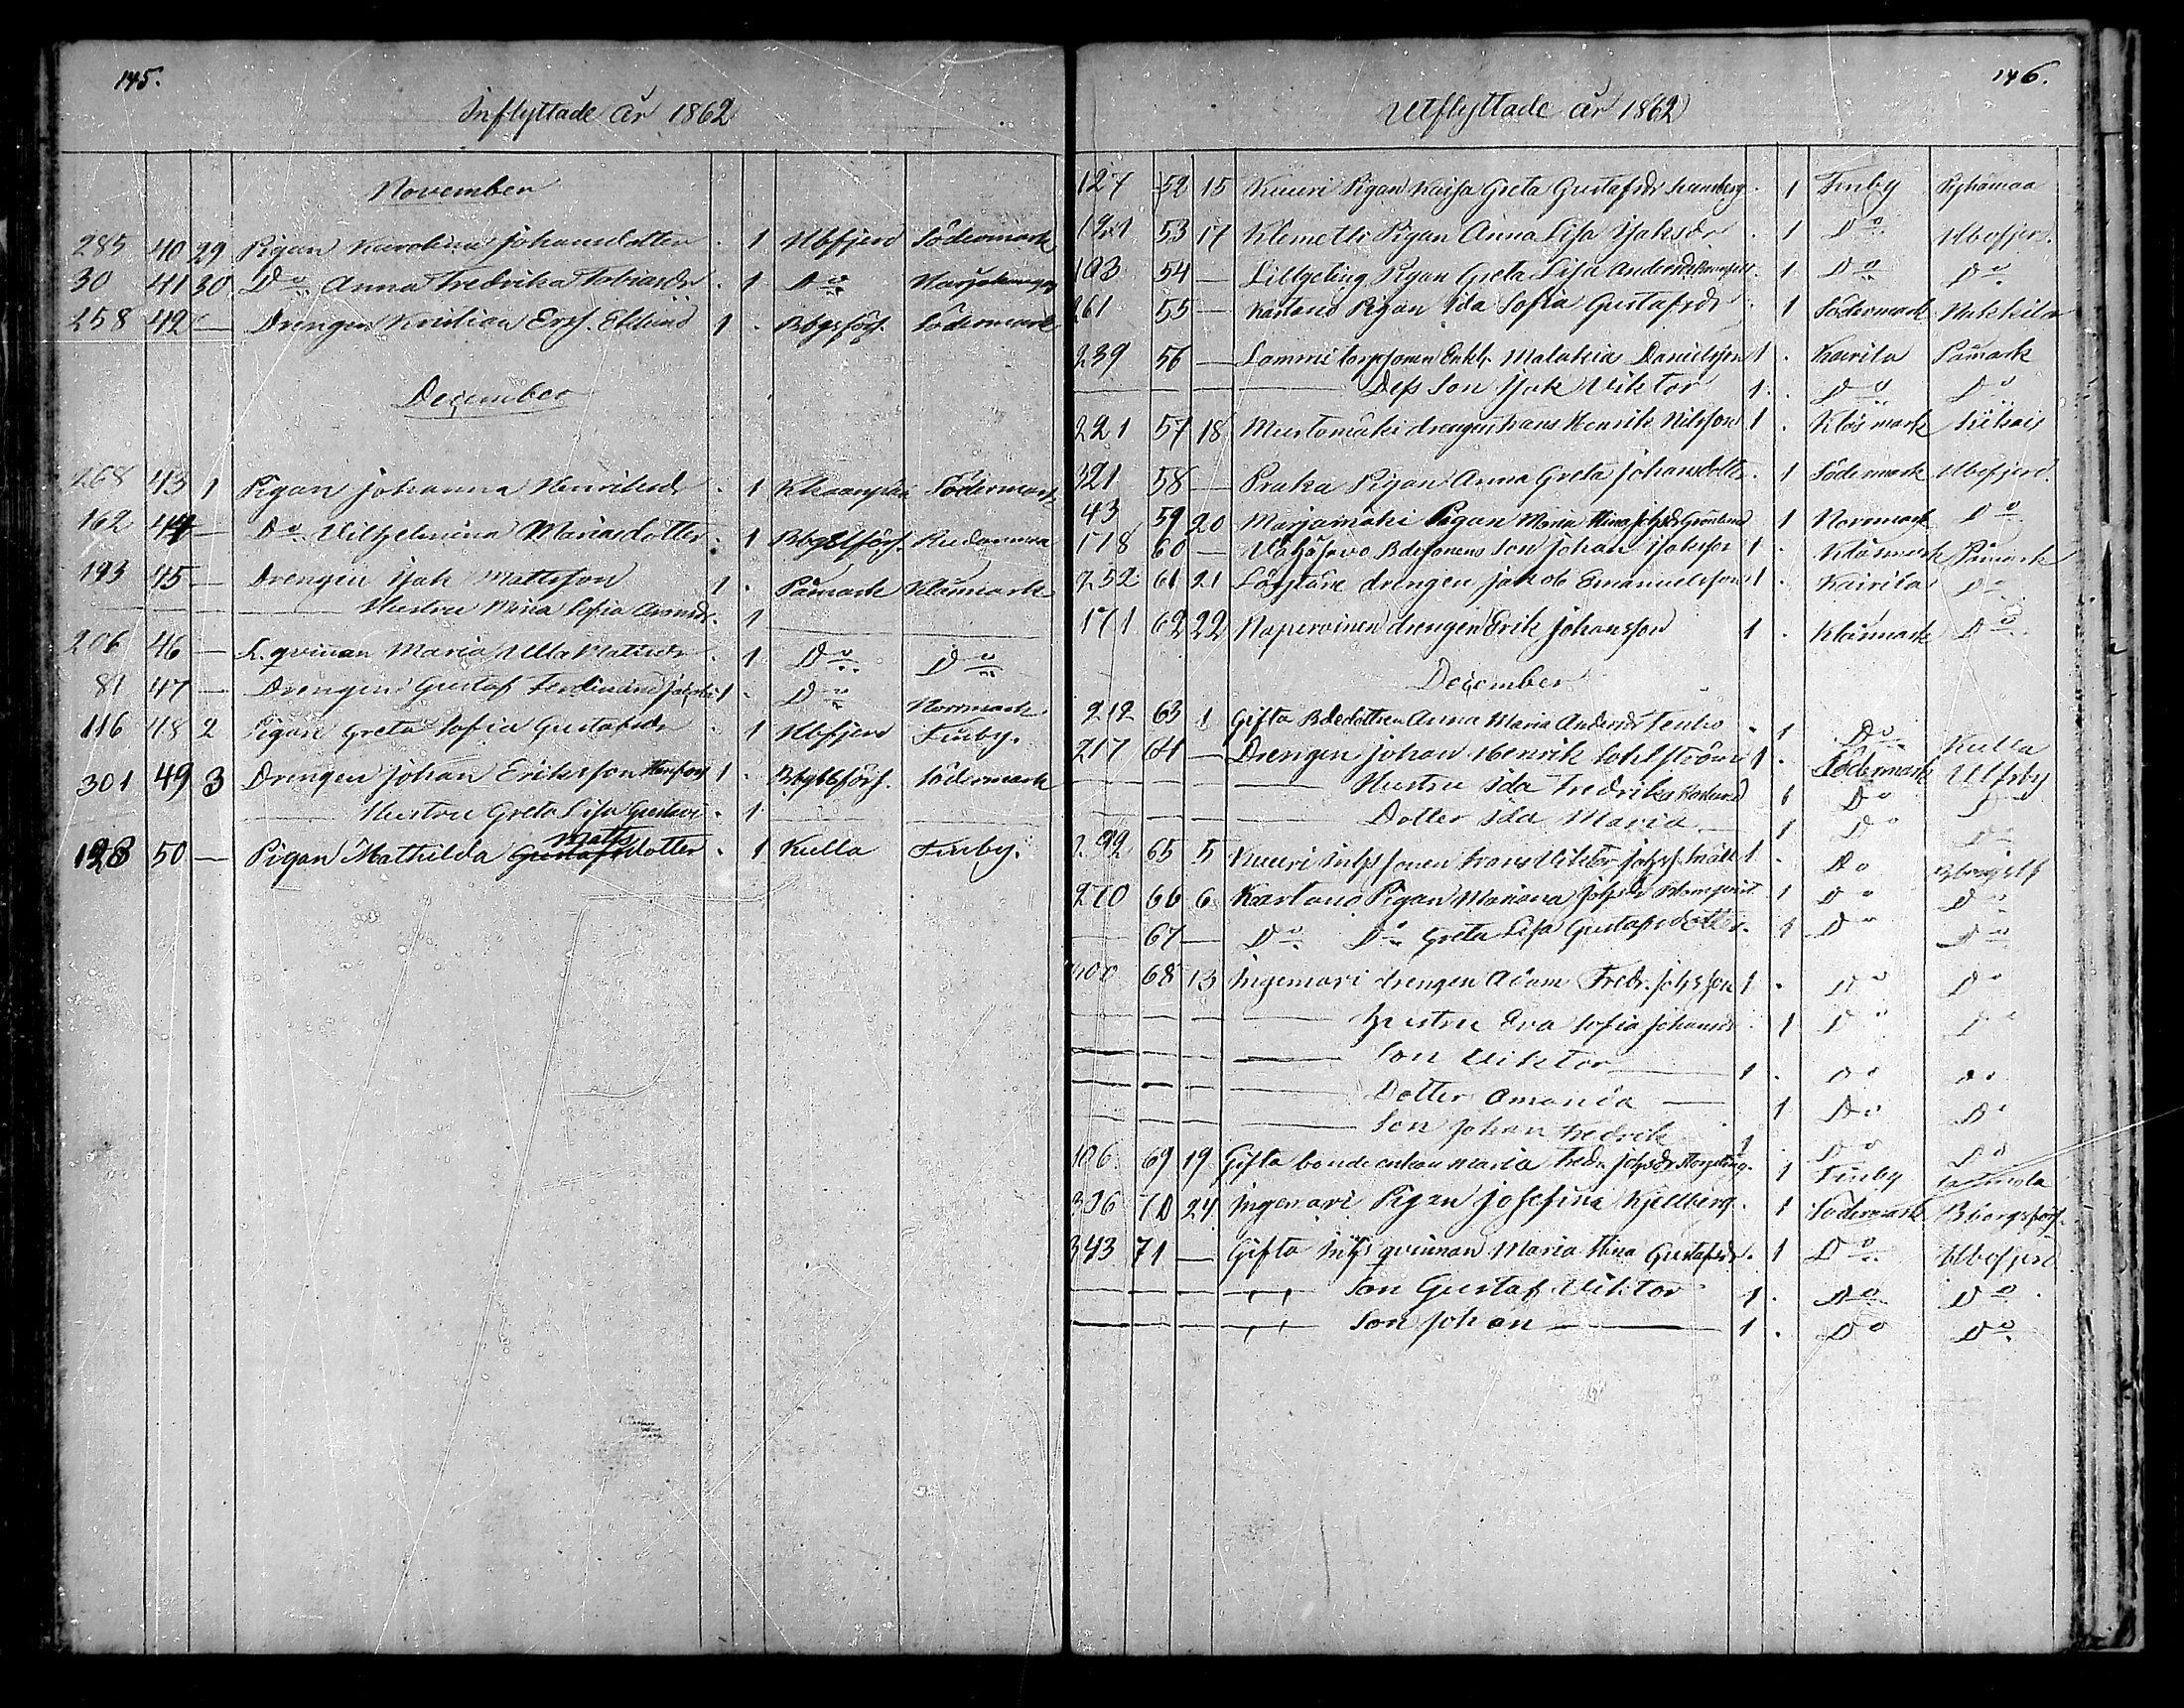 145.
Inflyttade år 1862
November
285 40 29 Pigan Karolina Johansdotter . 1 Ulfsfjerd Södermark
30 41 30 Do Anna Fredrika Tobiasdr . 1 Do
258 42 — Drengen Kristian Ersf. Eklund 1 . Södermark
December
268 43 1 Pigan Johanna Henriksdr . 1 Södermark
162 44 — Do Vilhelmina Mariasdotter . 1 Rudanmaa
193 45 — Drengen Isak Mattsson 1 . Påmark Klåsmark
Hustru Maria Sofia . 1
206 46 — qvinnan Maria Ulla Mattsdr . 1 Do Do
81 47 — Drengen Gustaf Ferdinand 1 . Do Norrmark
116 48 2 Pigan Greta Sofia Gustafsdr . 1 Ulfsfjerd Finby.
301 49 3 Drengen Johan Eriksson 1 . Södermark
Hustru Greta Lisa . 1
50 — Pigan Mathilda Matts Gustafsdotter . 1 Kulla Finby.
146.
Utflyttade år 1862
127 52 15 Kuuri Pigan Kaisa Greta Gustafsdr . 1 Finby Pyhämaa
53 17 Klemetti Pigan Anna Lisa Isaksdr . 1 Do Ulfsfjerd.
193 54 — Lillgeting Pigan Greta Lisa . 1 Do Do
261 55 — Kartano Pigan Ida Sofia Gustafsdr . 1 Södermark Nakkila
239 56 — Lammi Enkl. Malakia Danielsson 1 . Kairila Påmark
Dess Son Isak Viktor 1 . Do Do
221 57 18 Mustomäki drengen Frans Henrik Nilsson 1 . Klåsmark Kihais
321 58 — Praka Pigan Anna Greta Johansdotter . 1 Södermark Ulfsfjerd.
43 59 20 Marjamäki Pigan Maria Stina Johsdr Grönlund 1 Norrmark Do
178 60 — Bdesonens Son Johan Isaksson 1 . Klåsmark Påmark
252 61 21 drengen Jakob Emanuelsson 1 . Kairila Do
171 62 22 drengen Erik Johansson 1 . Klåsmark Do
December
212 63 1 Gifta Bdedottren Anna Maria Andersdr . 1 Do Kulla
217 64 — Drengen Johan Henrik Sohlström 1 . Södermark Ulfsby
Hustru Ida Fredrika 1 Do Do
Dotter Ida Maria 1 Do Do
292 65 5 Kuuri Frans Viktor 1 . Do
270 66 6 Kartano Pigan Mariana Johsdr Blomqvist 1 Do Do
67 — Do Do Greta Lisa Gustafsdotter . 1 Do Do
300 68 13 Ingemari drengen Adam Fredr. Johsson 1 . Do Do
Hustru Eva Sofia Johansdr . 1 Do Do
Son Viktor 1 . Do Do
Dotter Amanda 1 Do Do
Son Johan Fredrik 1 Do Do
106 69 19 Gifta bonde enkan Maria Fredr. Johsdr Storgeting . 1 Finby
306 70 24 Ingemari Pigan Josefina Kjellberg . 1 Södermark
343 71 — Gifta qvinnan Maria Stina Gustafsdr . 1 Do Ulfsfjerd
Son Gustaf Viktor 1 . Do Do
Son Johan 1 . Do Do